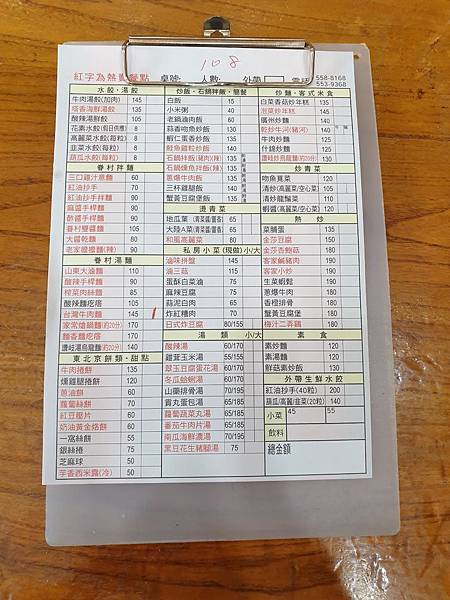 108
紅字為熱賣餐點 桌號: 人數: 外帶 電話 558-8168
553-9368
水餃、湯餃
牛肉湯餃(加肉) 145
塔香海鮮湯餃 135
酸辣湯鮮餃 105
花素水餃(每日供應) 8
高麗菜水餃(每粒) 8
韭菜水餃(每粒) 8
胡瓜水餃(每粒) 8
眷村拌麵
三口雞汁意麵 60
紅油抄手 70
紅油抄手拌麵 90
麻醬手桿麵 90
酢醬手桿麵 90
眷村雙醬麵 90
大醬乾麵 80
老家襪襠麵(辣) 90
眷村湯麵
山東大滷麵 110
酸辣手桿麵 110
榨菜肉絲麵 85
酸辣麵疙瘩 105
台灣牛肉麵 145 /
家常熗鍋麵(約20分) 170
麵香麵疙瘩 170
讚岐湯烏龍麵(約20分) 140
東北京餅類・甜點
牛肉捲餅 135
燻雞腿捲餅 130
蔥油餅 60
蘿蔔絲餅 70
紅豆麼片 60
奶油黃金烙餅 60
一窩絲餅 55
銀絲捲 75
芝麻球 50
芋香西米露(冷) 50
炒飯・石鍋拌飯・簡餐
白飯 15
小米粥 40
老鍋滷肉飯 60
蒜香吻魚炒飯 130
蝦仁蛋香炒飯 130
鮭魚雞粒炒飯 130
石鍋拌飯(豬肉)(辣) 135
石鍋燻魚拌飯(辣) 135
蔥爆牛肉飯 135
三杯雞腿飯 140
蟹黃豆腐煲飯 135
燙青菜
地瓜葉 65
大陸A菜 65
和風高麗菜 65
私房小菜(現做)小/大
滷味拼盤 145
滷三菇 115
蛋酥白菜滷 75
麻辣豆腐 75
蒜泥白肉 65
炸紅糟肉 70
日式炸豆腐 80/155
湯類 小/大
酸辣湯 50/150
雞茸玉米湯 55/155
翠玉豆腐蛋花湯 60/160
冬瓜蛤蜊湯 60/165
山藥排骨湯 65/185
貢丸蛋包湯 65/185
蘿蔔蔬菜丸湯 65/185
番茄牛肉片湯 65/185
南瓜海鮮濃湯 70/195
黑豆花生豬腳湯 75
炒麵・客式米食
白菜香菇炒年糕 135
泡菜炒年糕 145
廣州炒麵 140
乾炒牛河(豬河) 140
牛肉炒麵 125
什錦炒麵 125
讚岐炒烏龍麵(約20分) 130
炒青菜
吻魚莧菜 120
清炒(高麗菜/空心菜) 105
清炒龍鬚菜 110
蝦醬(高麗菜/空心菜) 120
熱炒
菜脯蛋 135
金莎豆腐 150
金莎杏鮑菇 180
客家鹹豬肉 180
客家小炒 180
生菜蝦鬆 190
蔥爆牛肉 180
香橙排骨 180
蟹黃豆腐煲 180
梅汁二弄鷄 180
素食
素炒麵 120
素湯麵 120
鮮菇素炒飯 130
外帶生鮮水餃
紅油抄手(40粒) 200
胡瓜/高麗/韭菜(20粒) 140
小菜 45 55
飲料
總金額